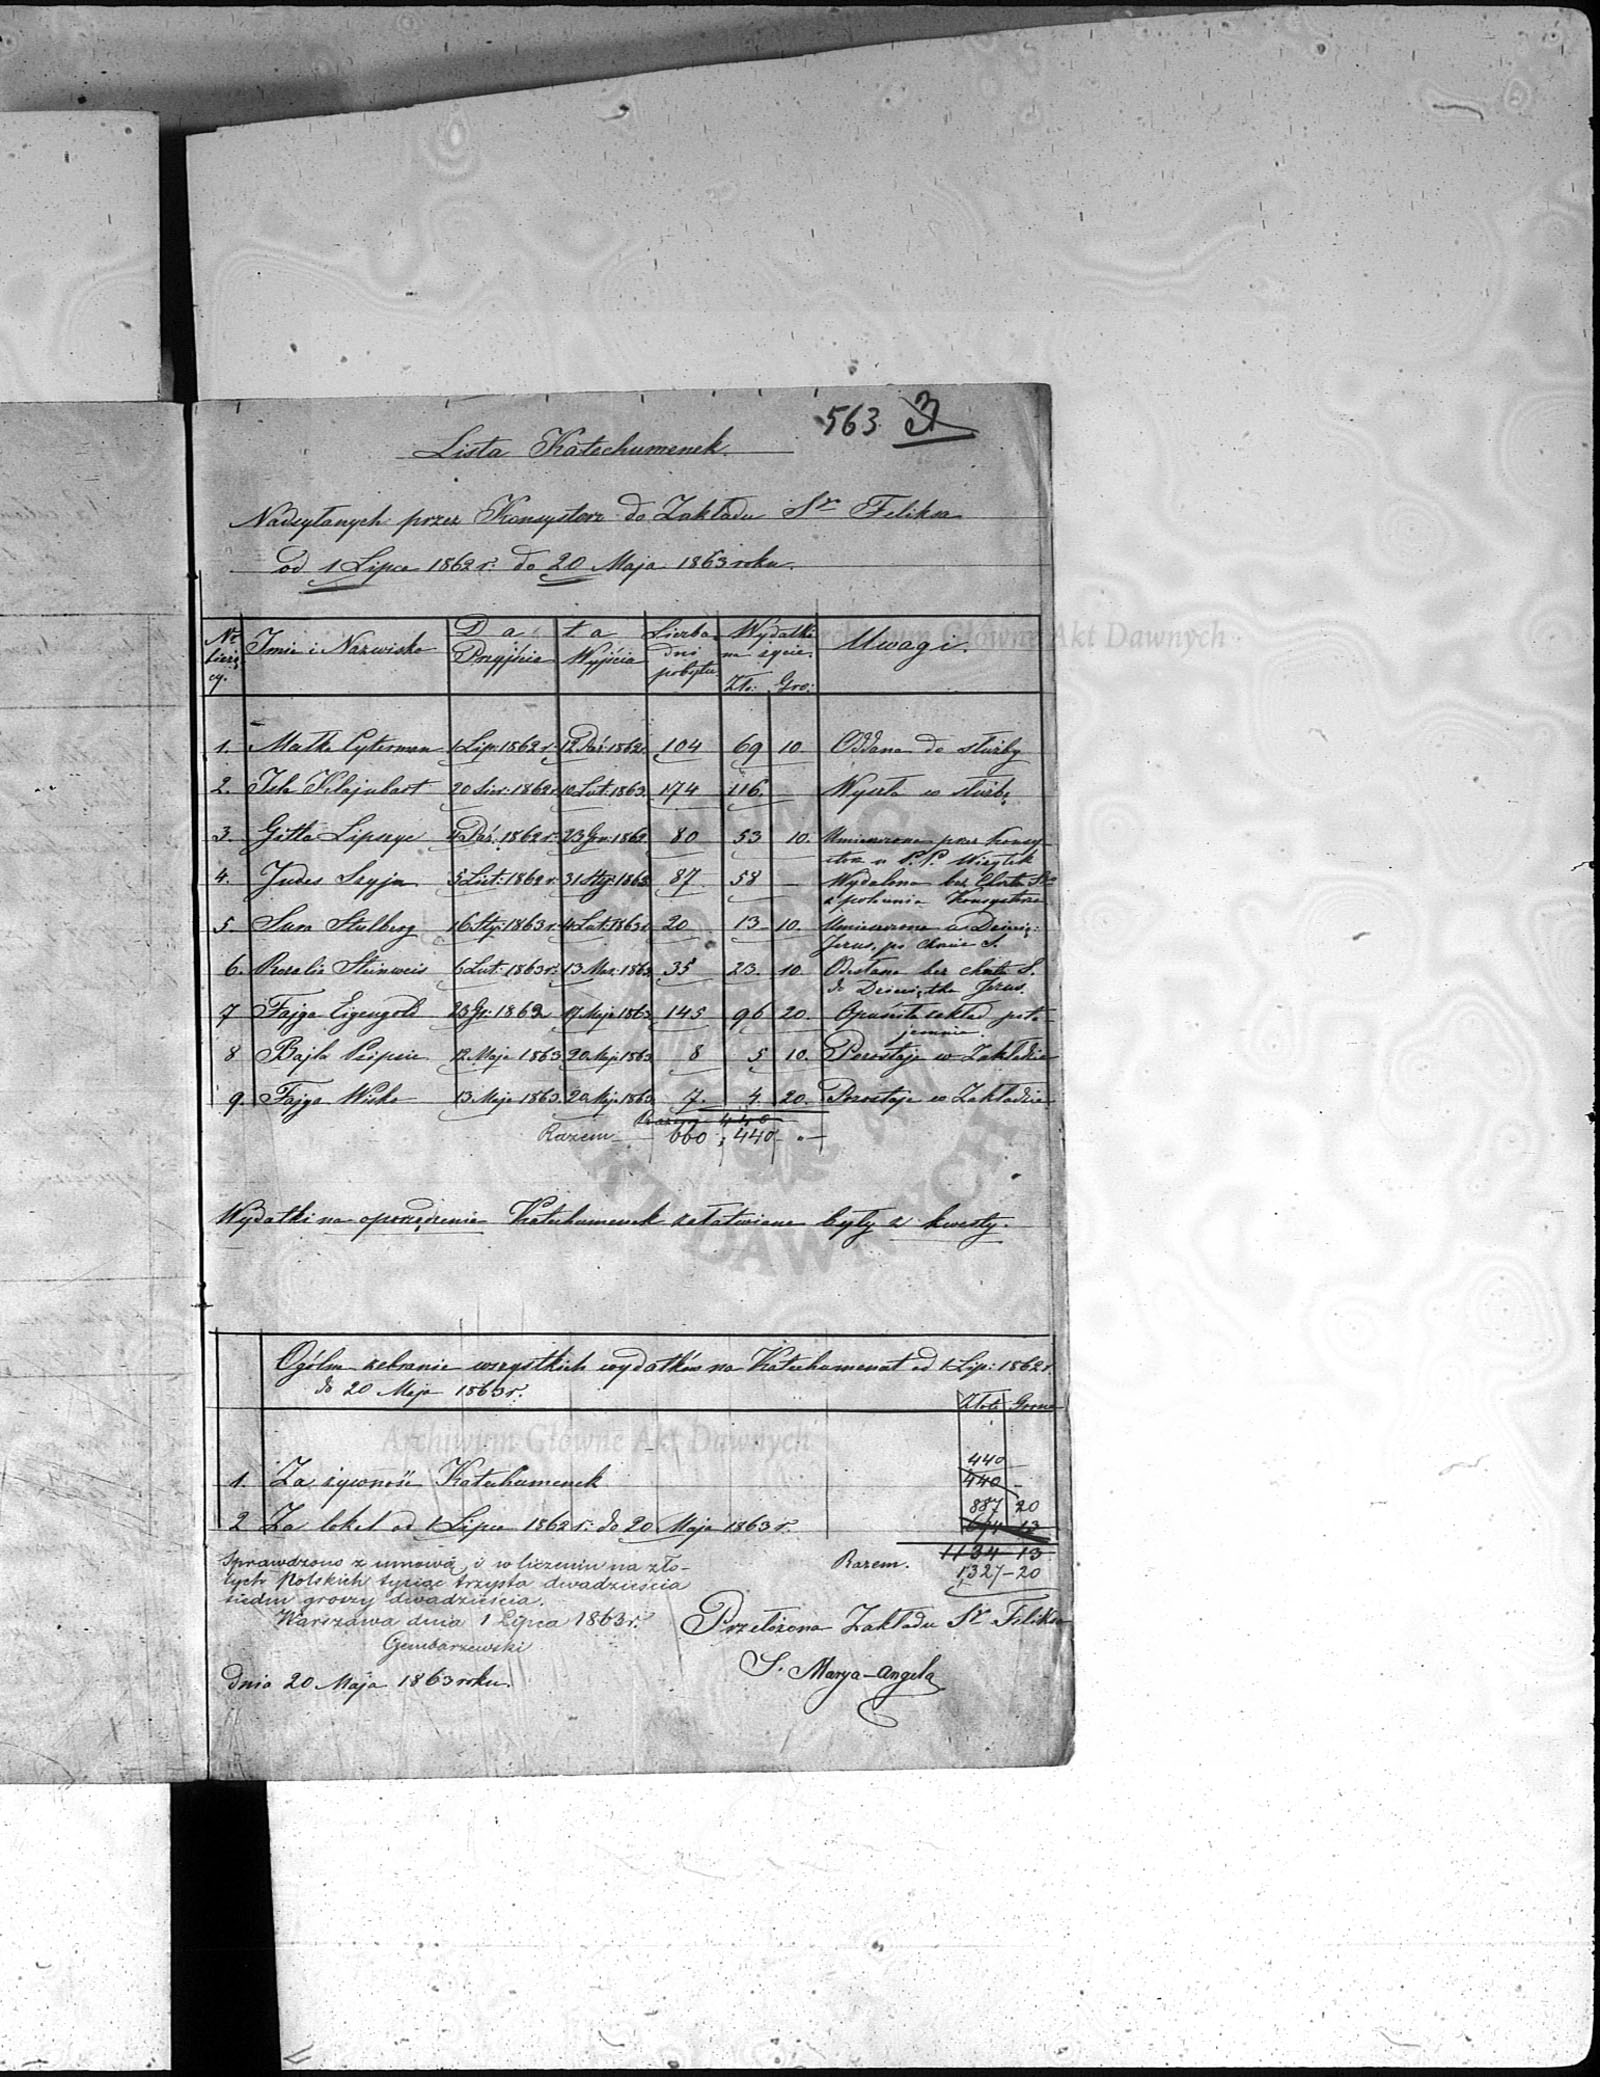 563. 3
Lista Katechumenek.
Nadsyłanych przez Konsystorz do Zakładu Sgo Feliksa
od 1 Lipca 1862 r. do 20 Maja 1863 roku.
Archiwum Główne Akt Dawnych
Nr bieżą- cy. Imie i Nazwisko Data Przyjścia Wyjścia Liczba dni pobytu Wydatki na życie. Złt: Gro: Uwagi.
1. Małka Cyterman 1 Lip: 1862 r. 12 Paź: 1862 104 69 10. Oddana do służby
2. Klajnbart 20 Sier: 1862 r. 10 Lut: 1863. 174 116. Wyszła w służbę
3. Gitla Lipszyc 4 Paź: 1862 r. 23 Gru: 1862. 80 53 10. Umieszczona przez Konsy-
storz u P.P. Wizytek
4. Judes Szyja 5 List: 1862 r. 31 Sty: 1863 87 58 – Wydalona bez Chrztu Sgo
z polecenia Konsystorza
5. Sura Stulberg 16 Sty: 1863 r. 4 Lut: 1863 20 13 10. Umieszczona w Dzieciąt:
Jezus, po Chrzcie S.
6. Rozalia Steinweis 6 Lut: 1863 r. 13 Mar: 1863. 35 23. 10. Odesłana bez chrztu S.
do Dzieciątka Jezus.
7 Fajga Eigengold 23 Gr: 1862 17 Maja 1863 145 96 20. Opuściła zakład pota-
jemnie.
8 Bajla 12 Maja 1863 20 Maja 1863. 8 5 10. Pozostaje w Zakładzie
9. Fajga 13 Maja 1863. 20 Maja 1863. 7. 4. 20. Pozostaje w Zakładzie
Razem 440
Razem 660 440 –
Wydatki na oporządzenie Katechumenek załatwiane były z kwesty.
Ogólne zebranie wszystkich wydatków na Katechumenat od 1 Lip: 1862 r.
do 20 Maja 1863 r.
Złote Grosze
Archiwum Główne Akt Dawnych
440 –
1. Za żywność Katechumenek 440 –
887 20
2 Za lokal od 1 Lipca 1862 r. do 20 Maja 1863 r. 694 13
Razem. 1134 13
1327 – 20
Sprawdzono z umową i w liczeniu na zło-
tych Polskich tysiąc trzysta dwadzieścia
siedm groszy dwadzieścia.
Warszawa dnia 1 Lipca 1863 r.
Gembarzewski
Przełożona Zakładu Sgo Feliksa
S. Marya-Angela
Dnia 20 Maja 1863 roku.